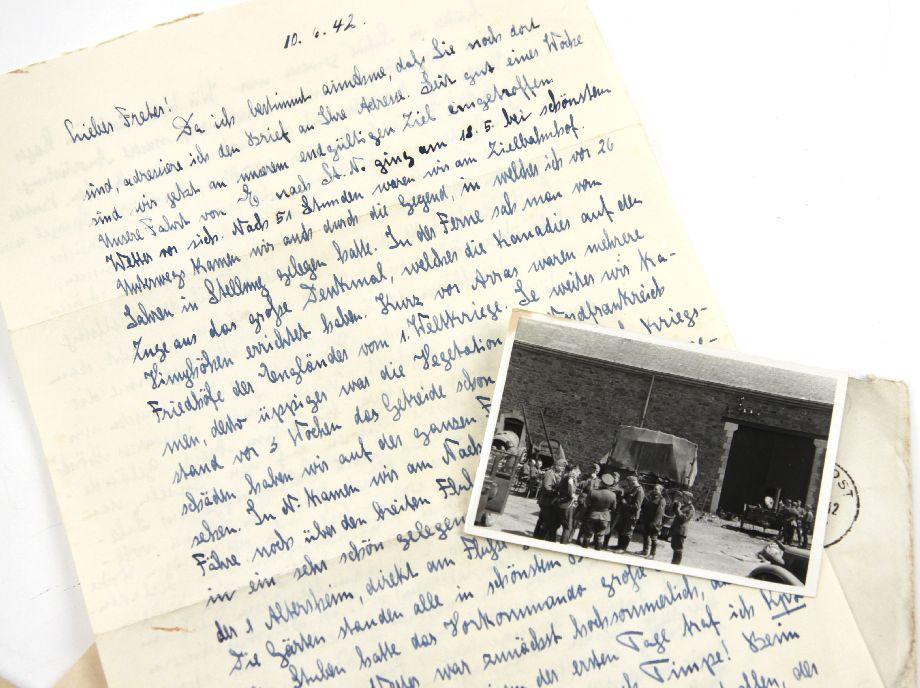 10. 6. 42.
Lieber Freter!
Da ich bestimmt annehme, daß Sie noch dort
sind, adressiere ich den Brief an Ihre Adresse. Seit gut einer Woche
sind wir jetzt an unserem endgültigen Ziel eingetroffen.
Unsere Fahrt von E. nach St. N. ging am 18. 5. bei schönstem
Wetter vor sich. Nach 51 Stunden waren wir am Zielbahnhof.
Unterwegs kamen wir auch durch die Gegend, in welcher ich vor 26
Jahren in Stellung gelegen hatte. In der Ferne sah man vom
Zuge aus das große Denkmal, welches die Kanadier auf den
Vimyhöhen errichtet haben. Kurz vor Arras waren mehrere
Friedhöfe der Engländer vom 1. Weltkriege. Je weiter wir ka-
men, desto üppiger war die Vegetation
stand vor 3 Wochen das Getreide schon Kriegs-
schäden haben wir auf der ganzen
sehen. In N. kamen wir am
Fähre noch über den breiten
in ein sehr schön gelegen
der 1 Altersheim, direkt am
Die Gärten standen alle in schönster
Stuben hatte das Vorkommando große
Wetter war zunächst hochsommerlich,
der ersten Tage traf ich
Timpe! Beim
der
OST
12